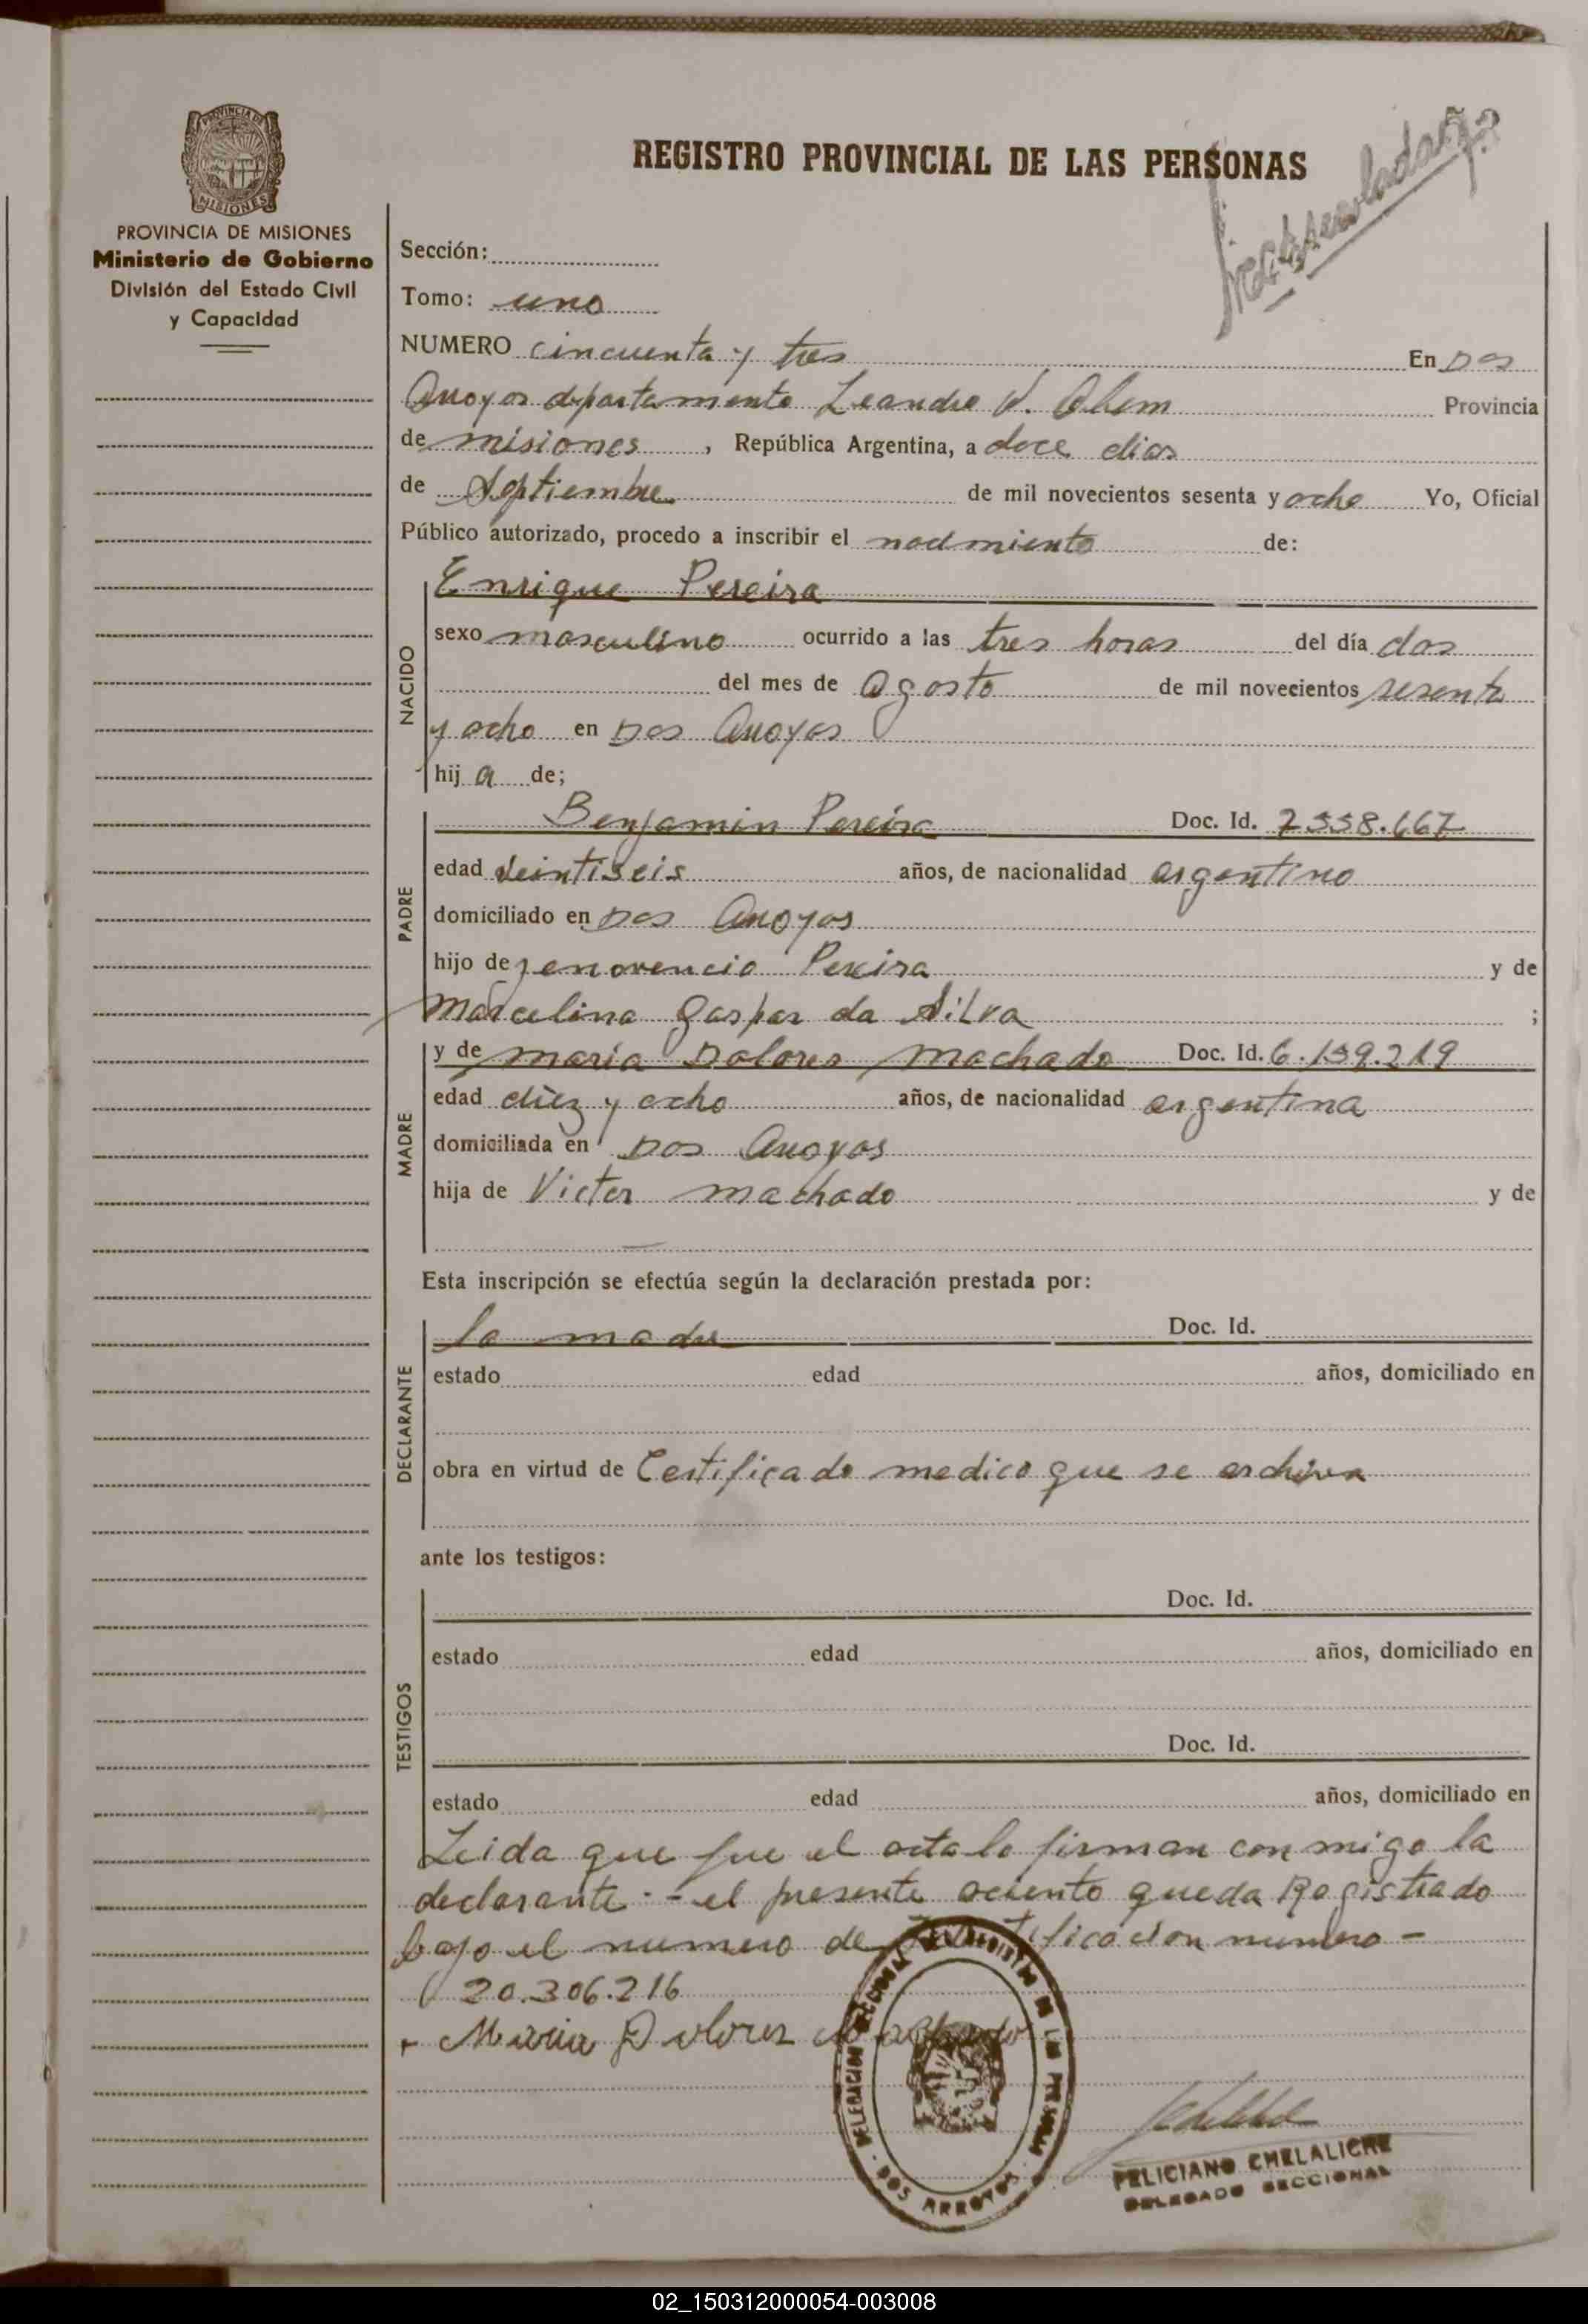 REGISTRO PROVINCIAL DE LAS PERSONAS
PROVINCIA DE MISIONES
Ministerio de Gobierno
División del Estado Civil
y Capacidad
Sección:
Tomo: uno
NUMERO cincuenta y tres En Dos
Arroyos departamento Leandro N. Alem Provincia
de misiones, República Argentina, a doce dias
de Septiembre de mil novecientos sesenta y ocho Yo, Oficial
Público autorizado, procedo a inscribir el nacimiento de:
NACIDO
Enrique Pereira
sexo masculino ocurrido a las tres horas del día dos
del mes de Agosto de mil novecientos sesenta
y ocho en Dos Arroyos
hij a de;
PADRE
Benjamin Pereira Doc. Id. 7558.667
edad veintiseis años, de nacionalidad argentino
domiciliado en Dos Arroyos
hijo de Pereira y de
Marcelina Gaspar da Silva ;
MADRE
y de maria Dolores machado Doc. Id. 6.159.219
edad diez y ocho años, de nacionalidad argentina
domiciliada en Dos Arroyos
hija de Victor machado y de
Esta inscripción se efectúa según la declaración prestada por:
DECLARANTE
la madre Doc. Id.
estado edad años, domiciliado en
obra en virtud de Certificado medico que se archiva
ante los testigos:
TESTIGOS
Doc. Id.
estado edad años, domiciliado en
Doc. Id.
estado edad años, domiciliado en
Leida que fue el acta la firman conmigo la
declarante.- el presente aciento queda Registrado
bajo el numero de numero -
20.306.216
Maria Dolores Machado
DELEGACION SECCIONAL DEL REGISTRO DE LAS PERSONAS
DOS ARROYOS
FELICIANO CHELALICHE
DELEGADO SECCIONAL
02_150312000054-003008